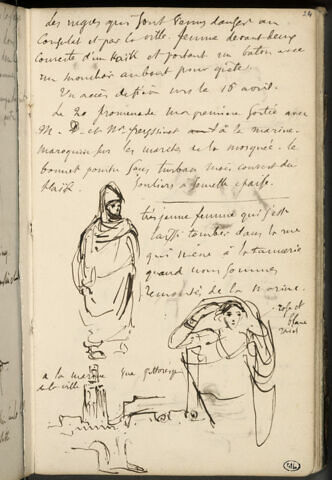 24
des negres qui sont venus danser au
Consulat et par la ville. femme devant eux
couverte d'un haïk et portant un baton avec
un mouchoir au bout pour quêter.
Un accès de fièvre vers le 16 avril.
Le 20 promenade ma première sortie avec
M. D. et Mr. freyssinet à la marine.
Maroquin sur les marches de la mosquée. le
bonnet pointu sans turban mais couvert du
haïk. Souliers à semelle épaisse.
très jeune femme qui s'est
laissé tomber dans la rue
qui mène à la tannerie
quand nous sommes
remontés de la marine.
rose et
blanc
a la marine
de la ville
vue